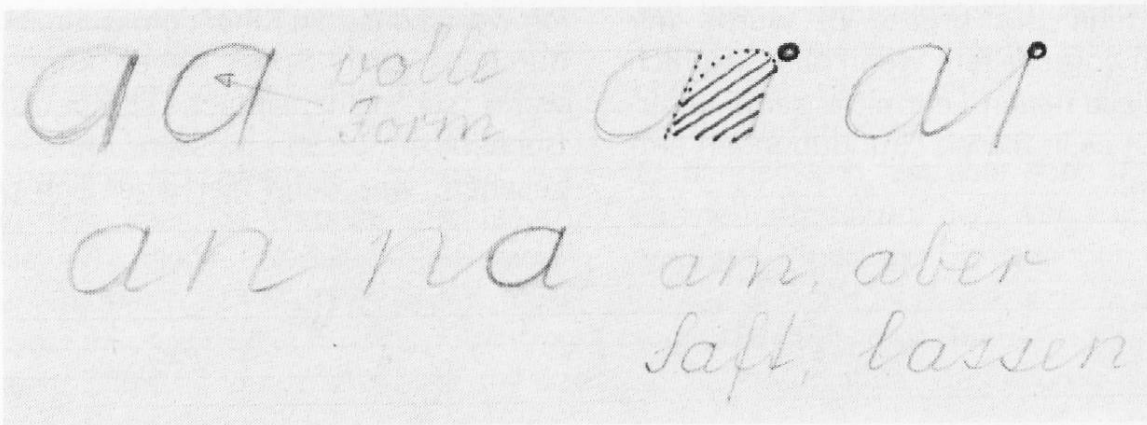 a a volle
Form
a i
an na am, aber
Saft, lassen